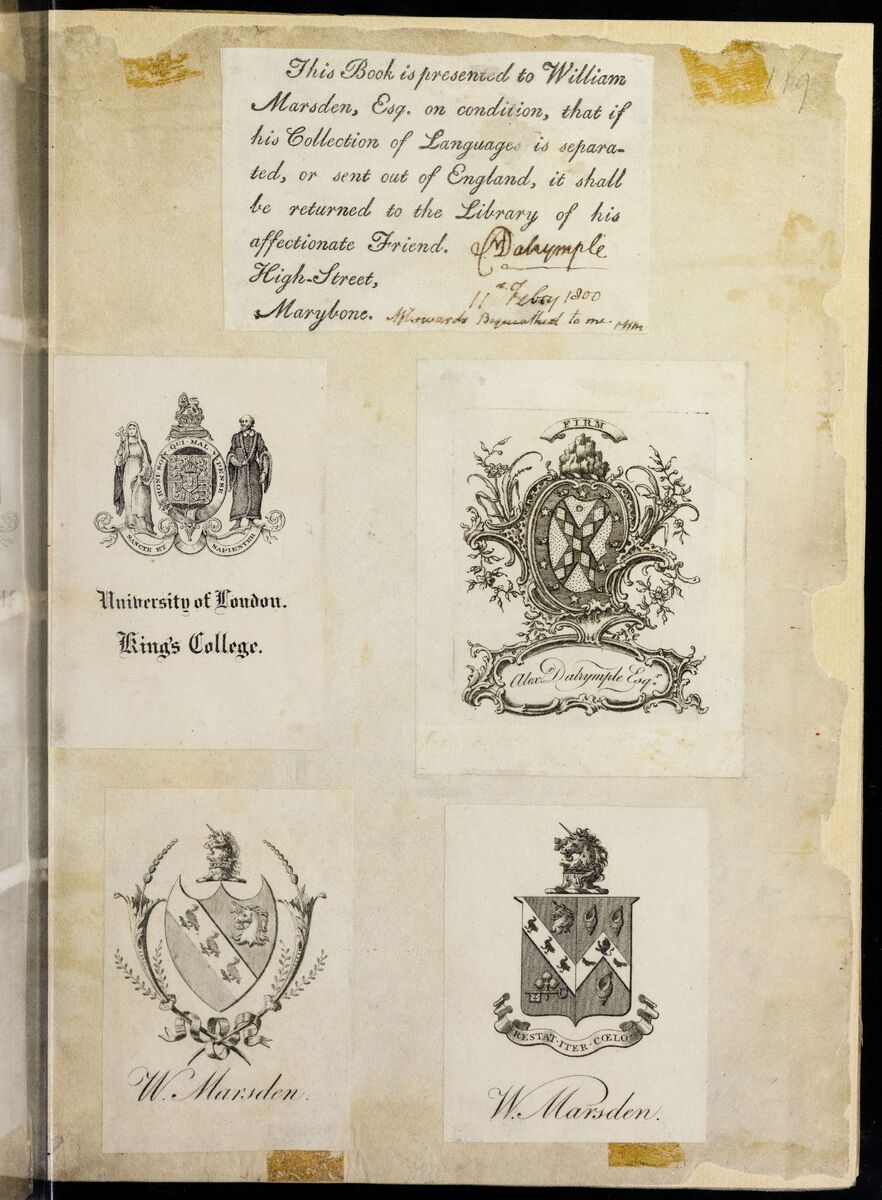 119
This Book is presented to William
Marsden, Esq. on condition, that if
his Collection of Languages is separa-
ted, or sent out of England, it shall
be returned to the Library of his
affectionate Friend. Dalrymple
High-Street, 11th Febry 1800
Marybone. Afterwards Bequeathed to me. WM
HONI·SOIT·QUI·MAL·Y·PENSE
SANCTE ET SAPIENTER
University of London.
King's College.
FIRM
Alexr. Dalrymple Esqr.
W. Marsden.
RESTAT·ITER·CŒLO·
W. Marsden.